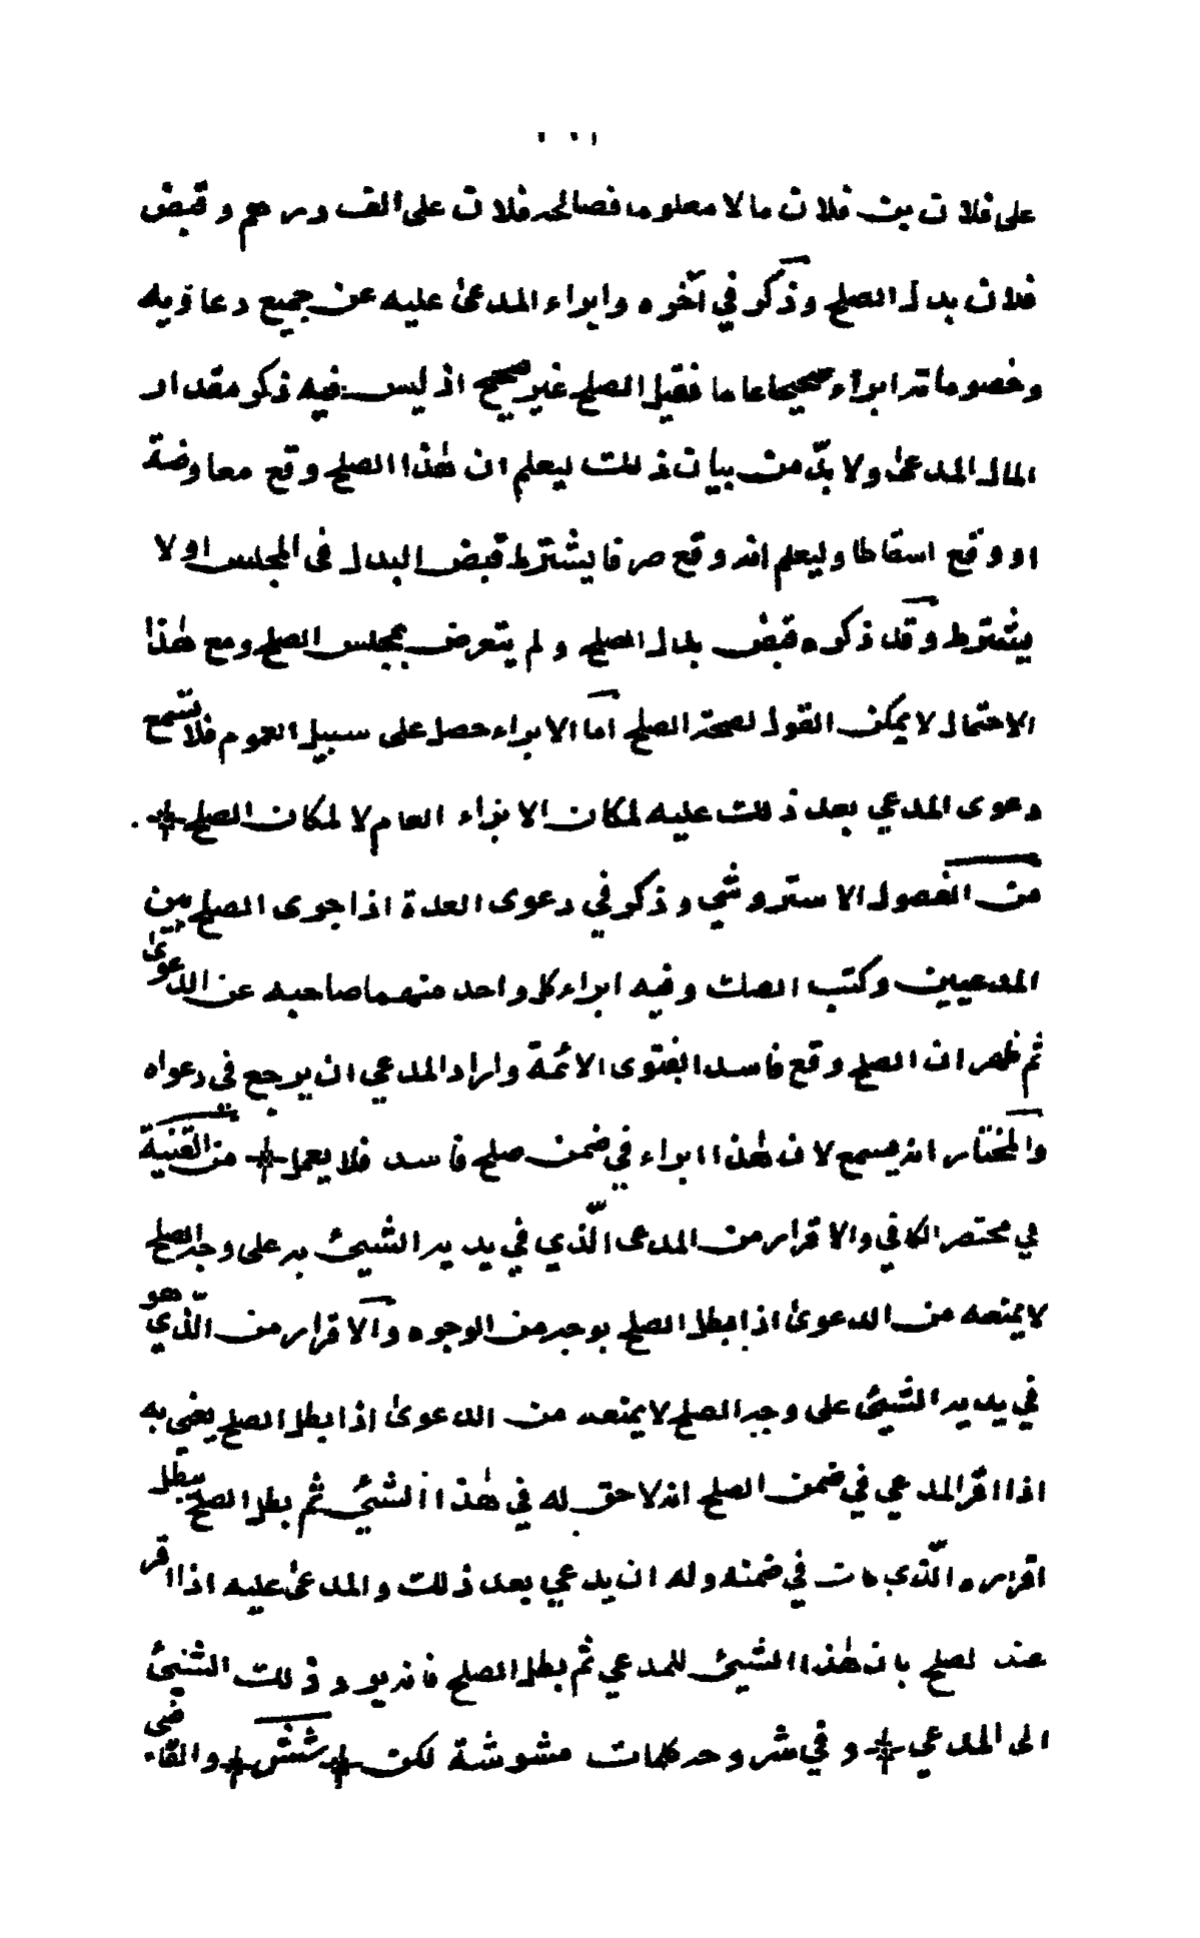 على فلان بن فلان مالا معلوما فصالحه فلان على الف درهم وقبض
فلان بدل الصلح وذكر في آخره وابراء المدعىٰ عليه عن جميع دعاويه
وخصوماته ابراء صحيحا عاما فقيل الصلح غير صحيح اذ ليس فيه ذكر مقدار
المال المدعىٰ ولا بدّ من بيان ذلك ليعلم ان هٰذا الصلح وقع معاوضة
او وقع اسقاطا وليعلم انه وقع صرفا يشترط قبض البدل في المجلس اولا
يشترط وقد ذكره قبض بدل الصلح ولم يتعرض بمجلس الصلح ومع هٰذا
الاحتمال لا يمكن القول لصحة الصلح اما الابراء حصل على سبيل العموم فلا تسمع
دعوى المدعي بعد ذلك عليه لمكان الابراء العام لا لمكان الصلح
من الفصول الاستروشي وذكر في دعوى العدة اذا جرى الصلح بين
المدعيين وكتب الصك وفيه ابراء كل واحد منهما صاحبه عن الدعوىٰ
ثم ظهر ان الصلح وقع فاسدا بفتوى الائمة واراد المدعي ان يرجع في دعواه
والمختار انه يسمع لان هٰذا ابراء في ضمن صلح فاسد فلا يعمل من القنية
في مختصر الكافي والاقرار من المدعى الّذي في يديه الشيئ به على وجه الصلح
لا يمنعه من الدعوىٰ اذا بطل الصلح بوجه من الوجوه والاقرار من الّذي هو
في يديه الشيئ على وجه الصلح لا يمنعه من الدعوىٰ اذا بطل الصلح يعني به
اذا اقر المدعي في ضمن الصلح انه لا حق له في هٰذا الشيئ ثم بطل الصلح يبطل
اقراره الّذي كان في ضمنه وله ان يدعي بعد ذلك والمدعىٰ عليه اذا اقر
عند لصلح بان هٰذا الشيئ للمدعي ثم بطل الصلح فانه يرد ذلك الشيئ
الى المدعي وفي شروحه كلمات مشوشة لكن والقاضى